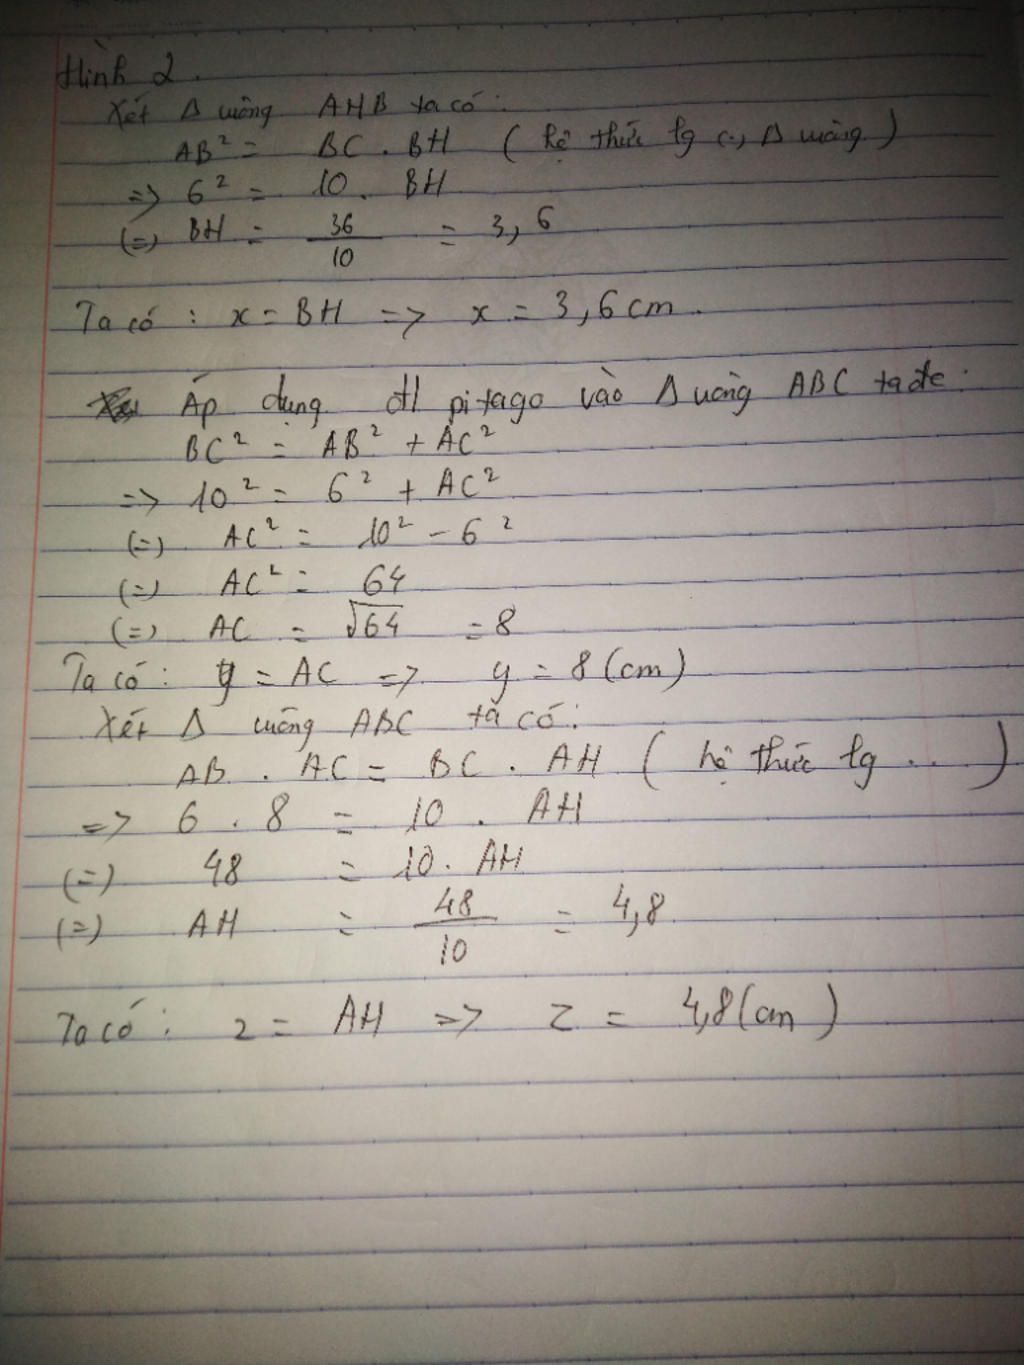 Hình 2.
Xét Δ vuông AHB ta có:
AB² = BC . BH ( hệ thức lg Δ vuông )
=> 6² = 10 . BH
(=) BH = 36/10 = 3,6
Ta có : x = BH => x = 3,6 cm.
Áp dụng đl pitago vào Δ vuông ABC ta đc :
BC² = AB² + AC²
=> 10² = 6² + AC²
(=) AC² = 10² - 6²
(=) AC² = 64
(=) AC = √64 = 8
Ta có : y = AC => y = 8 (cm)
Xét Δ vuông ABC ta có :
AB . AC = BC . AH ( hệ thức lg ... )
=> 6 . 8 = 10 . AH
(=) 48 = 10 . AH
(=) AH = 48/10 = 4,8
Ta có : z = AH => z = 4,8 (cm)